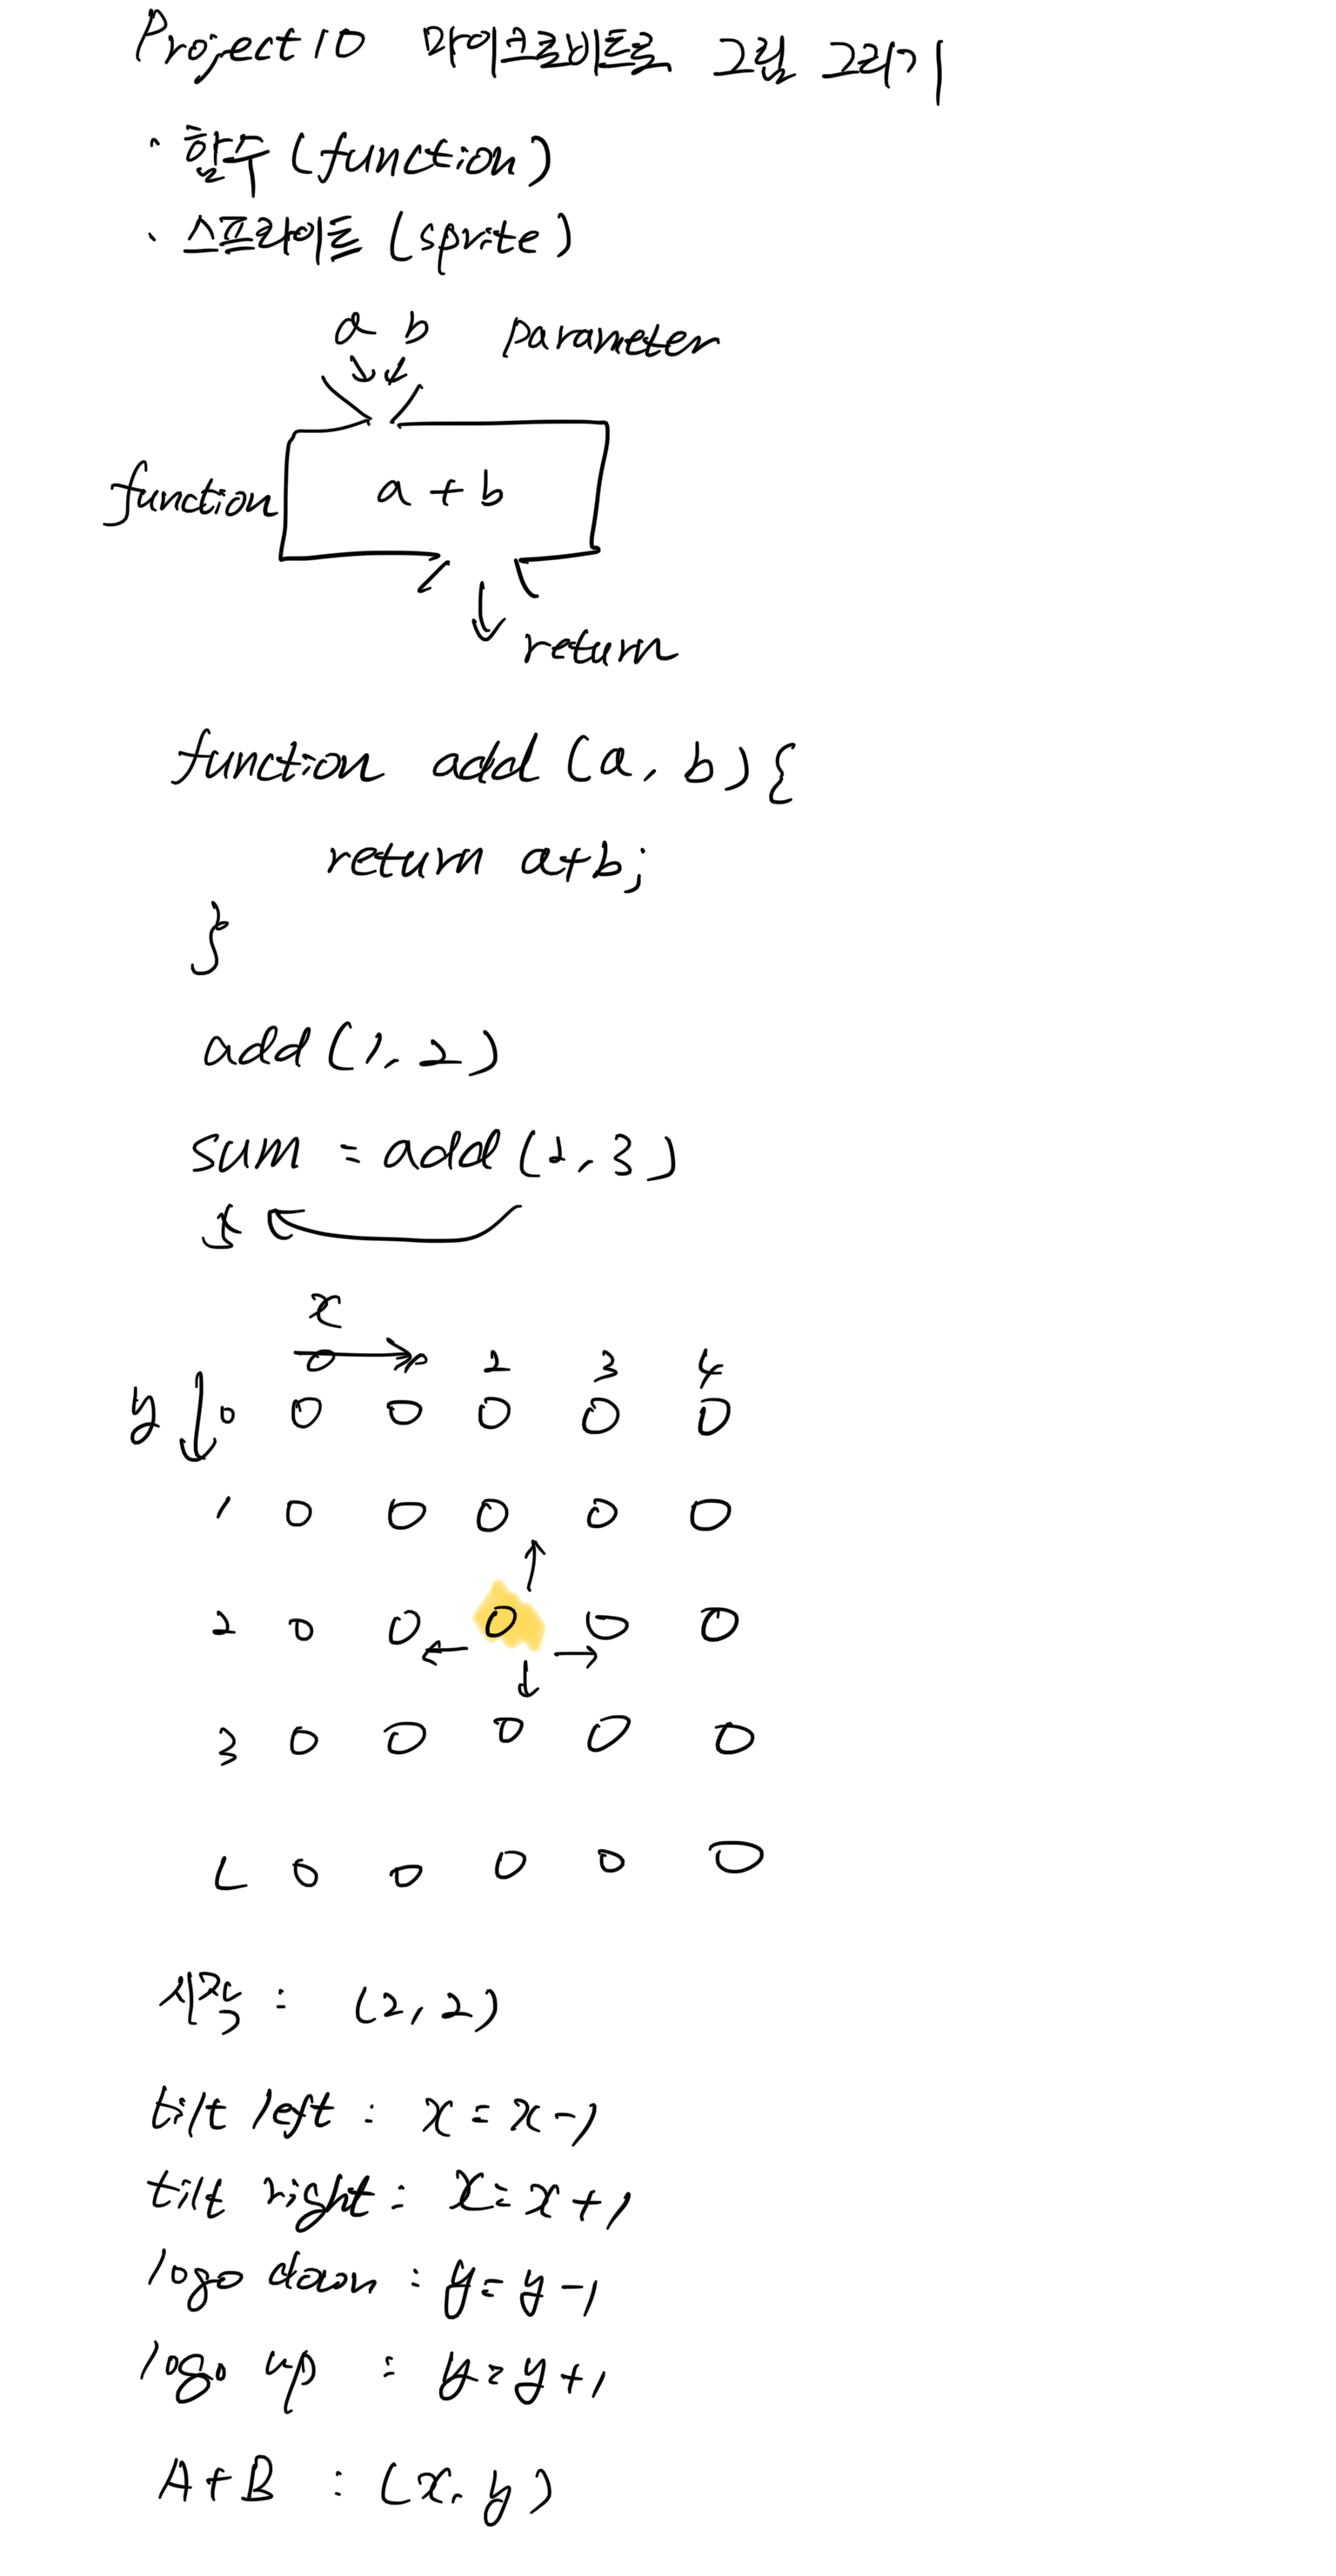 Project 10 마이크로비트로 그림 그리기
· 함수 (function)
· 스프라이트 (sprite)
a b parameter
function a + b
return
function add (a, b) {
return a+b;
}
add (1, 2)
sum = add (2, 3)
5
x
0 1 2 3 4
y 0 0 0 0 0 0
1 0 0 0 0 0
2 0 0 0 0 0
3 0 0 0 0 0
4 0 0 0 0 0
시작 : (2, 2)
tilt left : x = x - 1
tilt right : x = x + 1
logo down : y = y - 1
logo up : y = y + 1
A + B : (x, y)